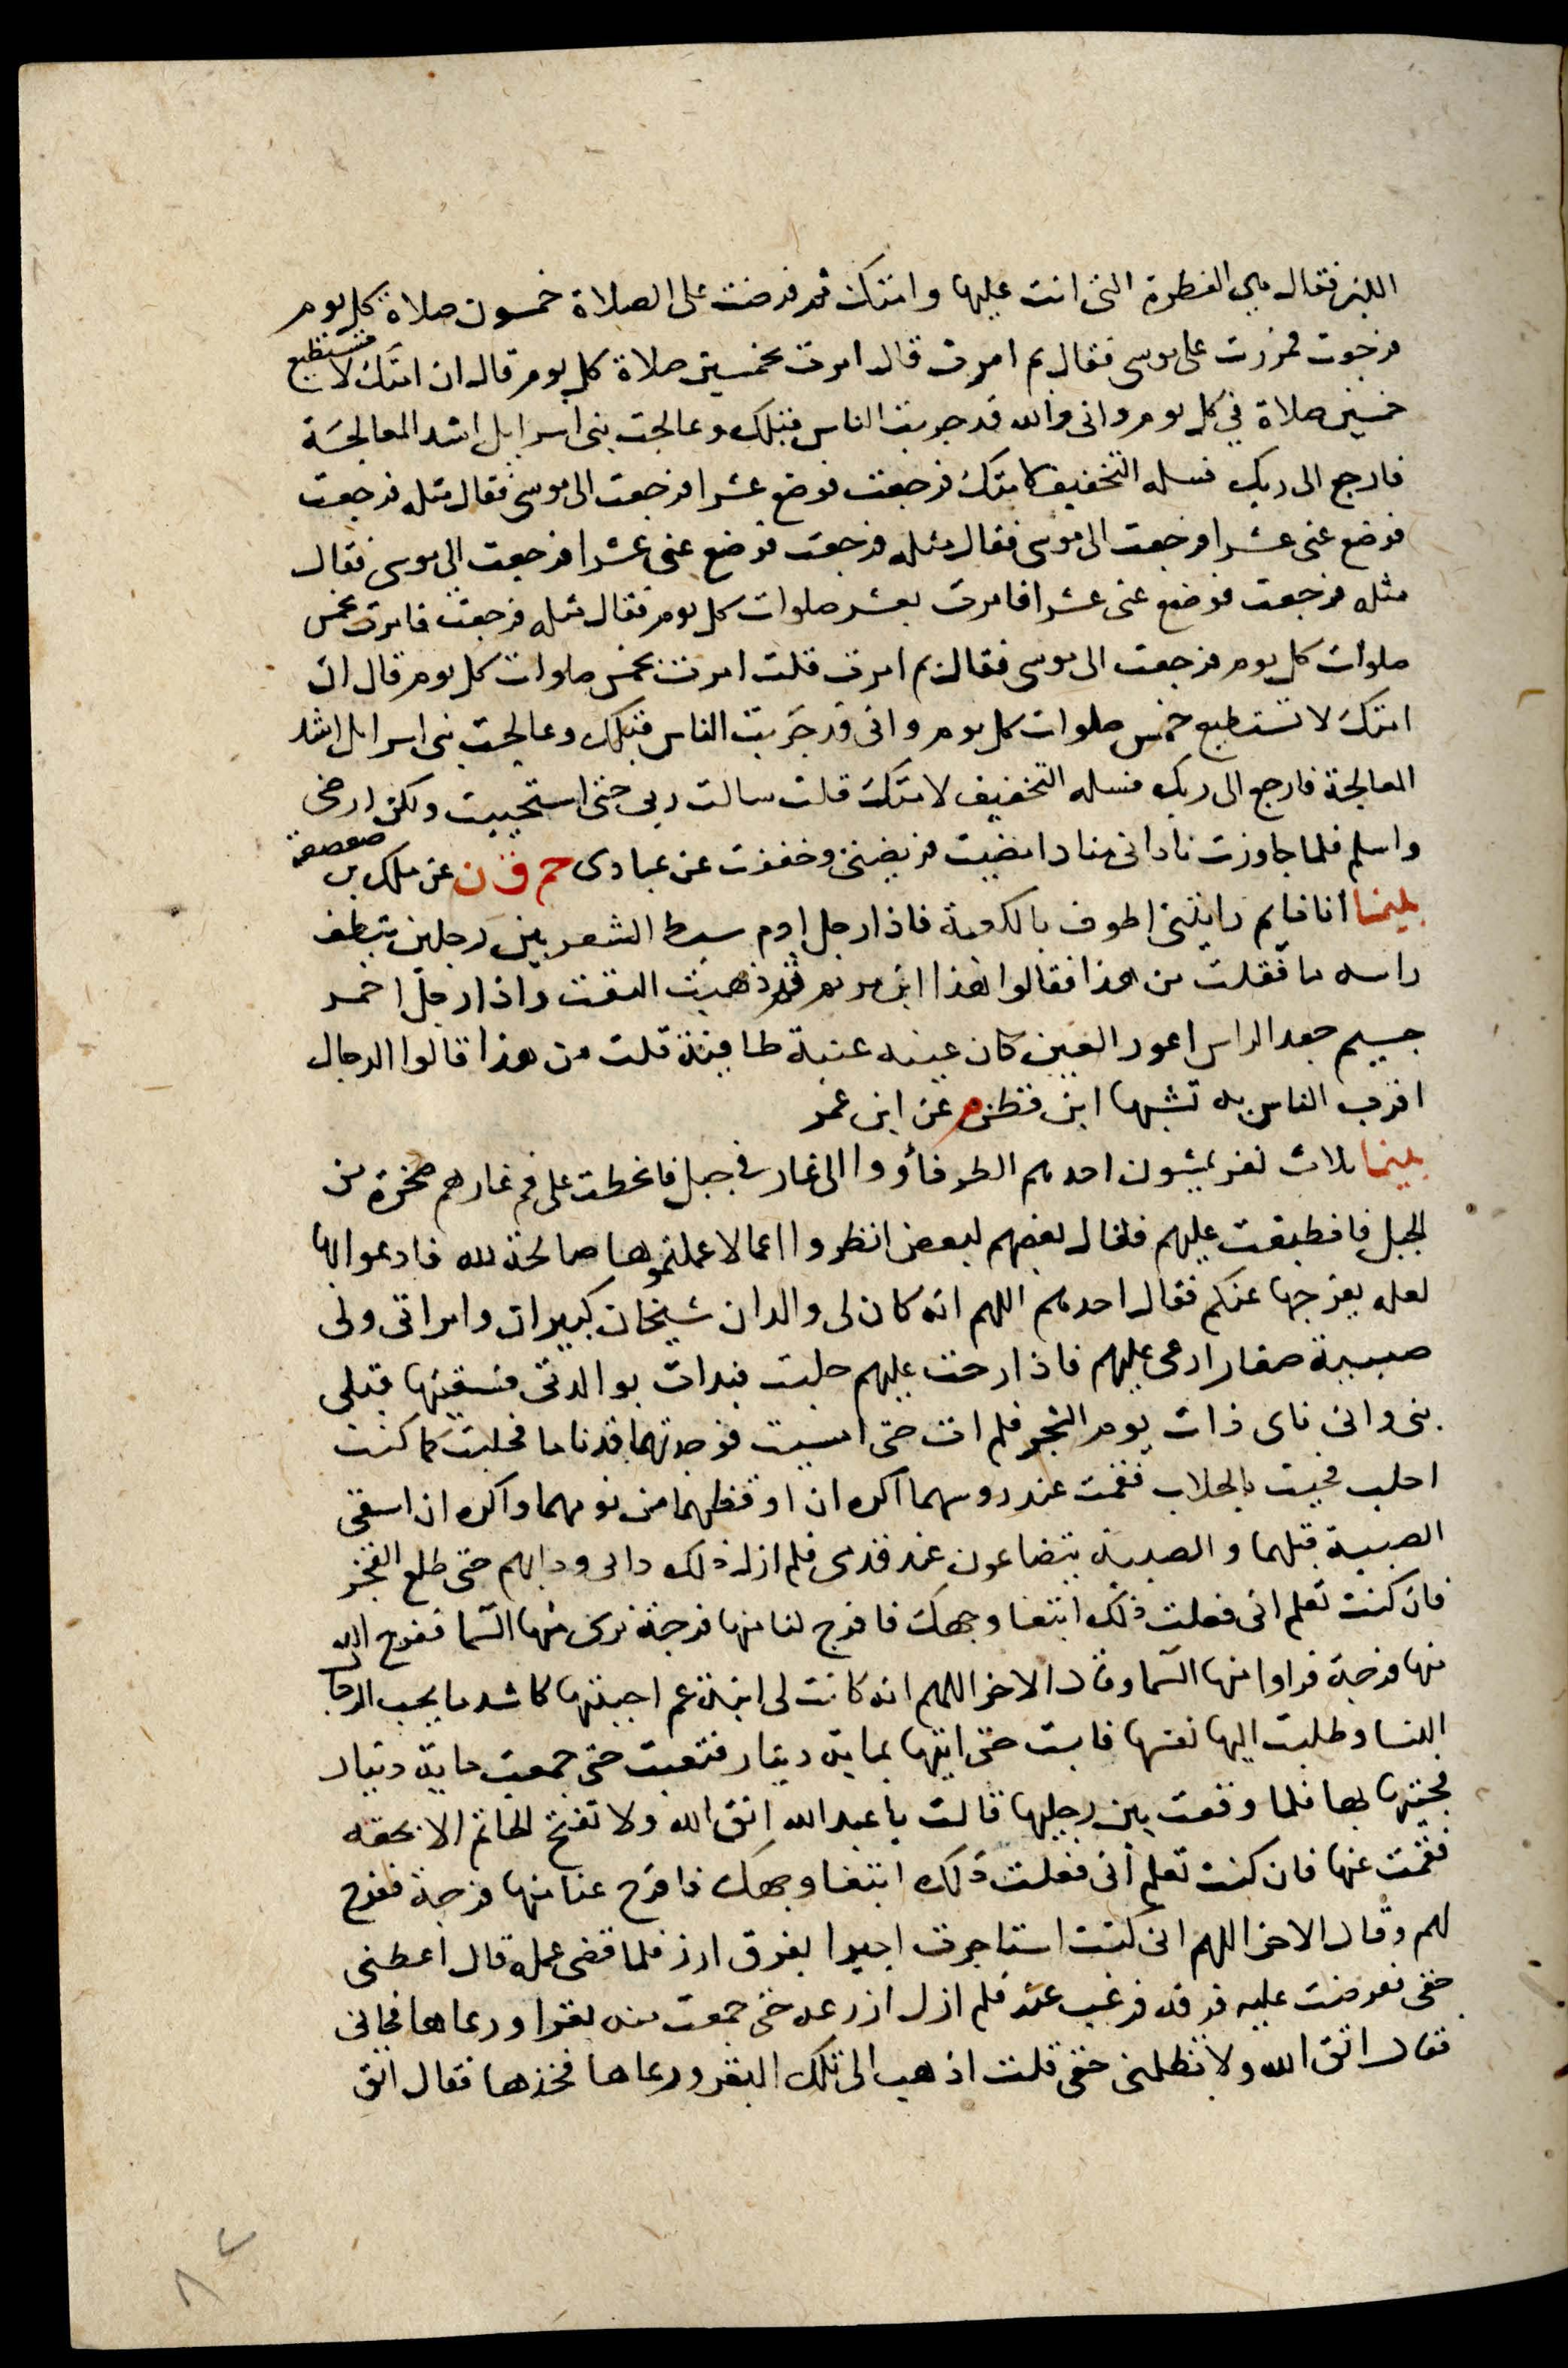 اللبن فقال هي الفطرة التي انت عليها وامتك ثم فرضت على الصلاة خمسون صلاة كل يوم
فرجعت فمررت على موسى فقال بم امرت قال امرت بخمسين صلاة كل يوم قال ان امتك لا تستطيع
خمسين صلاة في كل يوم وانى والله قد جربت الناس قبلك وعالجت بنى اسرايل اشد المعالجة
فارجع الى ربك فسله التخفيف لامتك فرجعت فوضع عشرا فرجعت الى موسى فقال مثله فرجعت
فوضع عنى عشرا فرجعت الى موسى فقال مثله فرجعت فوضع عنى عشرا فرجعت الى موسى فقال
مثله فرجعت فوضع عنى عشرا فامرت بعشر صلوات كل يوم فقال مثله فرجعت فامرت بخمس
صلوات كل يوم فرجعت الى موسى فقال بم امرت قلت امرت بخمس صلوات كل يوم قال ان
امتك لا تستطيع خمس صلوات كل يوم وانى قد جربت الناس قبلك وعالجت بنى اسرايل اشد
المعالجة فارجع الى ربك فسله التخفيف لامتك قلت سالت ربى حتى استحييت ولكن ارضى
واسلم فلما جاوزت نادانى مناد امضيت فريضتى وخففت عن عبادى حم ق ن عن ملك بن صعصعة
بينما انا نايم رايتنى اطوف بالكعبة فاذا رجل ادم سبط الشعر بين رجلين ينطف
راسه ما فقلت من هذا فقالوا هذا ابن مريم ثم ذهبت التفت واذا رجل احمر
جسيم جعد الراس اعور العين كان عينه عنبة طافية قلت من هذا قالوا الدجال
اقرب الناس به تشبها ابن قطن م عن ابن عمر
بينما ثلاث نفر يمشون اخدهم المطر فأووا الى غار في جبل فانحطت على فم غارهم صخرة من
الجبل فانطبقت عليهم فقال بعضهم لبعض انظروا اعمالا عملتموها صالحة لله فادعوا بها
لعله يفرجها عنكم فقال احدهم اللهم انه كان لى والدان شيخان كبيران وامراتى ولى
صبية صغار ارعى عليهم فاذا رحت عليهم حلبت فبدات بوالدتى فسقيتها قبلى
بنى وانى ناى ذات يوم الشجر فلم ات حتى امسيت فوجدتهما قد ناما فحلبت كما كنت
احلب فجيت بالحلاب فقمت عند روسهما اكره ان اوقظهما من نومهما واكره ان اسقى
الصبية قبلهما والصبية يتضاعون عند قدمى فلم ازل ذلك دابى ودابهم حتى طلع الفجر
فان كنت تعلم انى فعلت ذلك ابتغا وجهك فافرج لنا منها فرجة نرى منها السما ففرج الله
منها فرجة فراوا منها السما وقال الاخر اللهم انه كانت لى ابنة عم احببتها كاشد ما يحب الرجال
النسا وطلبت اليها نفسها فابت حتى اتيتها بماية دينار فتعبت حتى جمعت ماية دينار
فجيتها بها فلما وقعت بين رجليها قالت يا عبد الله اتق الله ولا تفتح الخاتم الا بحقه
فقمت عنها فان كنت تعلم أنى فعلت ذلك ابتغا وجهك فافرج عنا منها فرجة ففرج
لهم وقال الاخر اللهم انى كنت استاجرت اجيرا بفرق ارز فلما قضى عمله قال أعطنى
حقى فعرضت عليه فرقه فرغب عنه فلم ازل ازرعه حتى جمعت منه بقرا ورعاها فجانى
فقال اتق الله ولا تظلمنى حقى قلت اذهب الى تلك البقر ورعاها فخذها فقال اتق